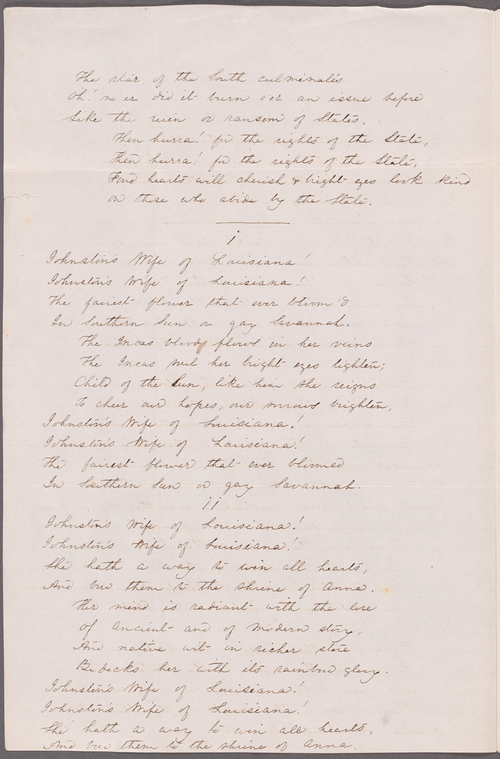 The star of the South culminates
Oh! ne'er did it burn o'er an issue before
Like the ruin or ransom of States.
Then hurra! for the rights of the State,
Then hurra! for the rights of the State,
Fond hearts will cherish & bright eyes look kind
On those who abide by the State.
i
Johnston's Wife of Louisiana!
Johnston's Wife of Louisiana!
The fairest flower that ever bloom'd
In Southern Sun or gay Savannah.
The Incas blood flows in her veins
The Incas soul her bright eyes lighten;
Child of the Sun, like him she reigns
To cheer our hopes, our sorrows brighten,
Johnston's Wife of Louisiana!
Johnston's Wife of Louisiana!
The fairest flower that ever bloomed
In Southern Sun or gay Savannah.
ii
Johnston's Wife of Louisiana!
Johnston's Wife of Louisiana!
She hath a way to win all hearts,
And bow them to the shrine of Anna.
Her mind is radiant with the lore
Of Ancient and of Modern story,
And native wit in richer store
Bedecks her with its rainbow glory.
Johnston's Wife of Louisiana!
Johnston's Wife of Louisiana!
She hath a way to win all hearts,
And bow them to the shrine of Anna.